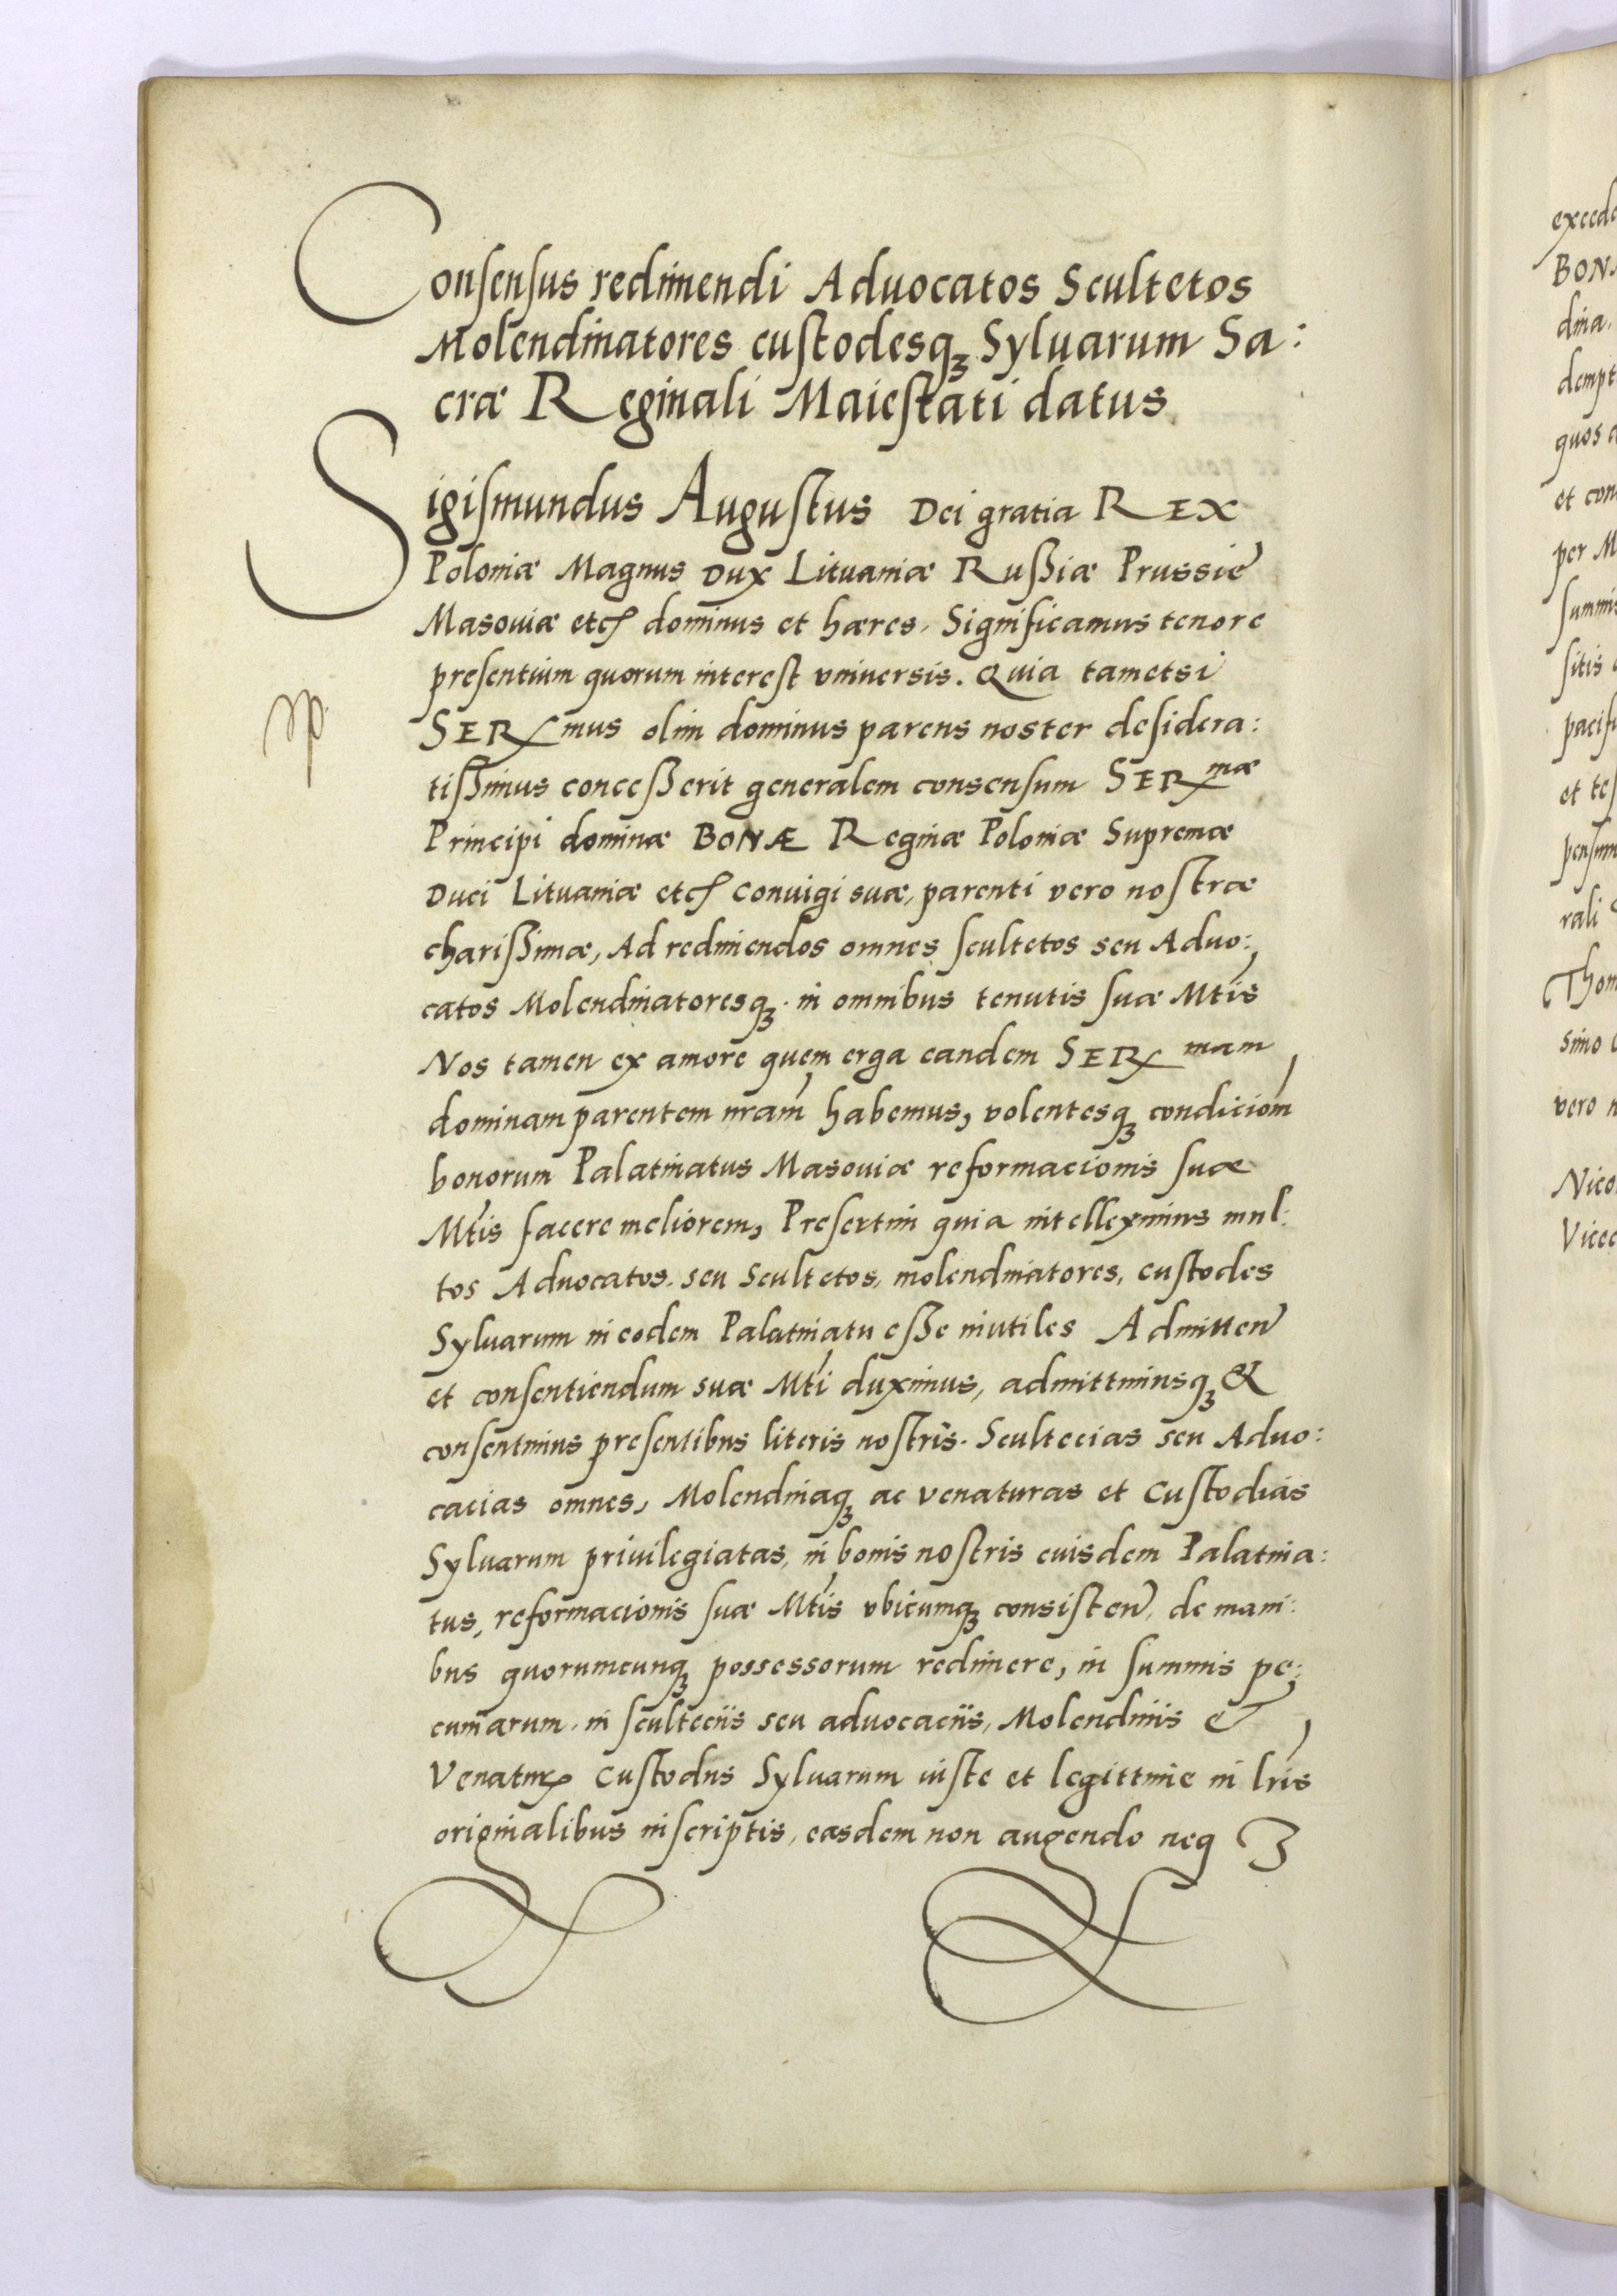 Consensus redimendi Aduocatos Scultetos
Molendinatores custodesqꝫ Syluarum Sa:
cræ Reginali Maiestati datus
Sigismundus Augustus Dei gratia REX
Poloniæ Magnus Dux Lituaniæ Rußiæ Prussie
Masouiæ etcꝭ dominus et hæres. Significamus tenore
presentium quorum interest vniuersis. Quia tametsi
SERmus olim dominus parens noster desidera:
tißimus conceßerit generalem consensum SERmæ
Principi dominæ BONÆ Reginæ Poloniæ Supremæ
Duci Lituaniæ etcꝭ Conuigi suæ, parenti vero nostræ
charißimæ, Ad redimendos omnes scultetos seu Aduo:
catos Molendinatoresqꝫ. in omnibus tenutis suæ Mtis
Nos tamen ex amore quem erga eandem SERmam
dominam parentem nram habemus, volentesqꝫ condiciom
bonorum Palatinatus Masouiæ reformacionis suæ
Mtis facere meliorem, Presertim quia intelleximus mul:
tos Aduocatos. seu Scultetos, molendinatores, custodes
Syluarum in eodem Palatinatu eße inutiles Admitten
et consentiendum suæ Mti duximus, admittimusqꝫ &
consentimus presentibus literis nostris. Scultecias seu Aduo:
cacias omnes, Molendinaqꝫ ac venaturas et Custodias
Syluarum priuilegiatas, in bonis nostris euisdem Palatina:
tus, reformacionis suæ Mtis vbicumqꝫ consisten, de mani:
bus quorumcunqꝫ possessorum redimere, in summis pe:
cuniarum. in sculteciis seu aduocaciis, Molendinis &
Venaturꝭ Custodiis Syluarum iuste et legittime in lris
originalibus inscriptis, easdem non augendo neqꝫ
exced
BON
dina.
dempt
quos a
et con
per M
summis
sitis
pacif
et tes
pensum
rali
Thom
simo
vero n
Nico
Vicec